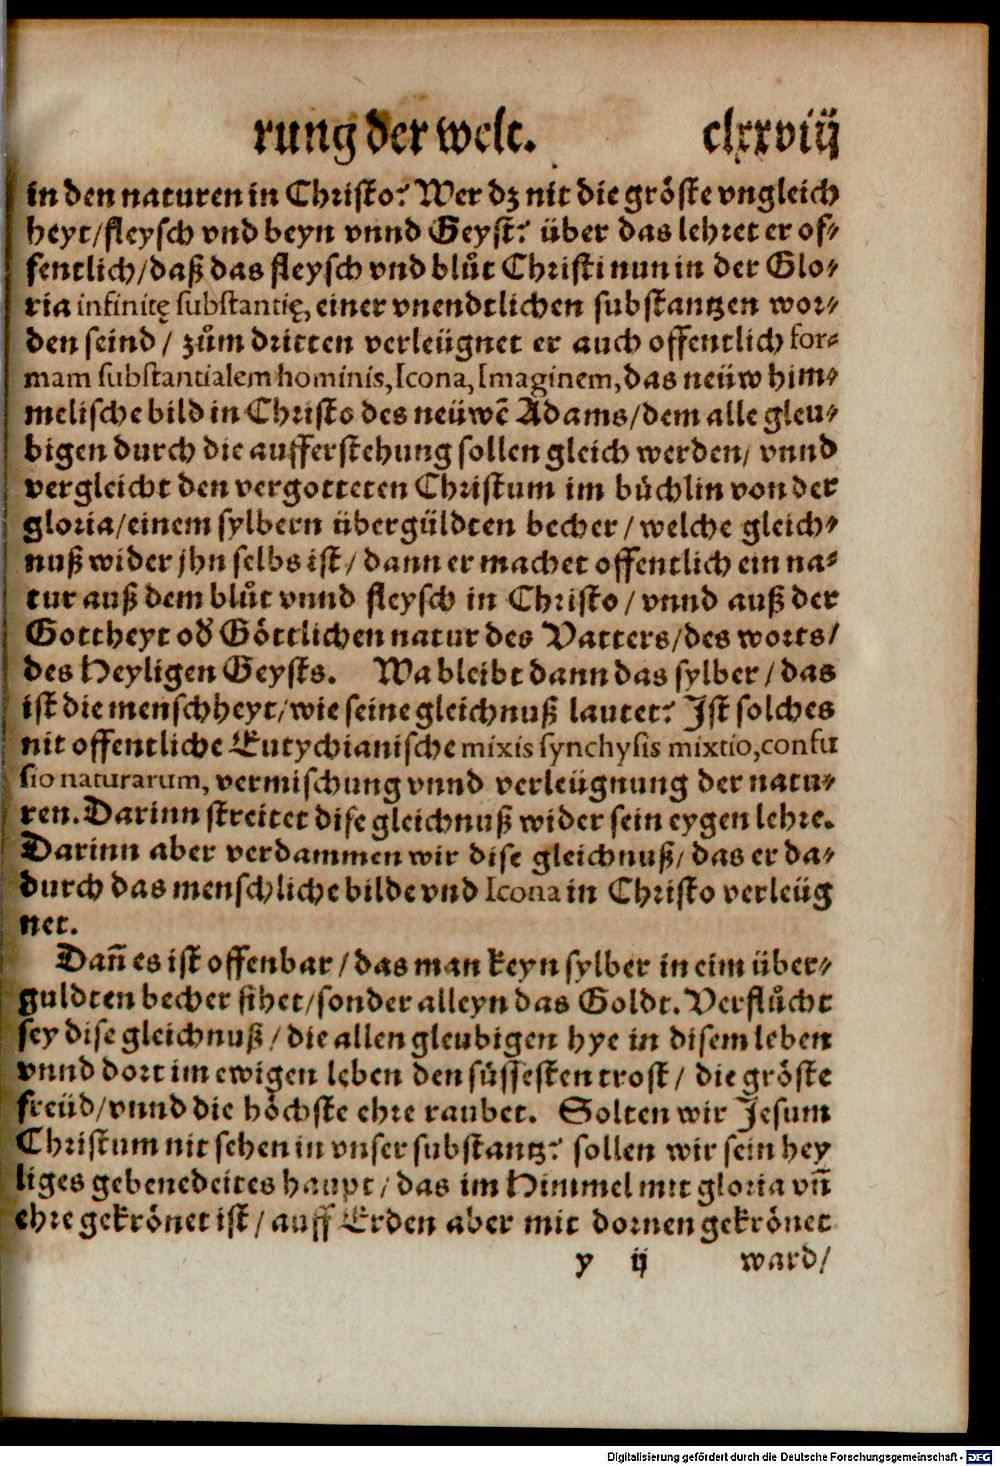 rung der welt. clxxviij
in den naturen in Christo? Wer dz nit die gröste vngleich
heyt/fleysch vnd beyn vnnd Geyst? über das lehret er of-
fentlich/daß das fleysch vnd blůt Christi nun in der Glo-
ria infinitę substantię, einer vnendtlichen substantzen wor-
den seind/ zům dritten verleügnet er auch offentlich for-
mam substantialem hominis, Icona, Imaginem, das neüw him-
melische bild in Christo des neüwē Adams/dem alle gleu-
bigen durch die aufferstehung sollen gleich werden/ vnnd
vergleicht den vergotteten Christum im büchlin von der
gloria/einem sylbern übergüldten becher/welche gleich-
nuß wider jhn selbs ist/dann er machet offentlich ein na-
tur auß dem blůt vnnd fleysch in Christo/vnnd auß der
Gottheyt od̕ Göttlichen natur des Vatters/des worts/
des Heyligen Geysts. Wa bleibt dann das sylber/das
ist die menschheyt/wie seine gleichnuß lautet? Ist solches
nit offentliche Eutychianische mixis synchysis mixtio, confu
sio naturarum, vermischung vnnd verleügnung der natu-
ren. Darinn streitet dise gleichnuß wider sein eygen lehre.
Darinn aber verdammen wir dise gleichnuß/das er da-
durch das menschliche bilde vnd Icona in Christo verleüg
net.
Dañ es ist offenbar/das man keyn sylber in eim über-
guldten becher sihet/sonder alleyn das Goldt. Verflůcht
sey dise gleichnuß/die allen gleubigen hye in disem leben
vnnd dort im ewigen leben den süssesten trost/ die gröste
freüd/vnnd die höchste ehre raubet. Solten wir Jesum
Christum nit sehen in vnser substantz? sollen wir sein hey
liges gebenedeites haupt/das im Himmel mit gloria vñ
ehre gekrönet ist/auff Erden aber mit dornen gekrönet
y ij ward/
Digitalisierung gefördert durch die Deutsche Forschungsgemeinschaft - DFG